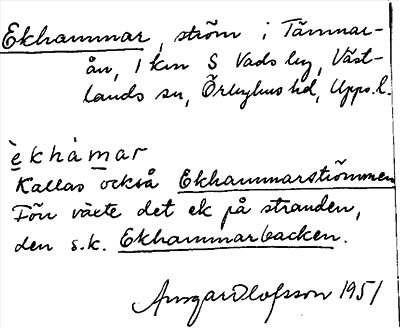 Ekhammar, ström i Tämnar-
ån, 1 km S Vads by, Väst-
lands sn, Örbyhus hd, Upps.l.
èkhàmar
Kallas också Ekhammarströmmen
Förr växte det ek på stranden,
den s.k. Ekhammarbacken.
Ansgar Olofsson 1951